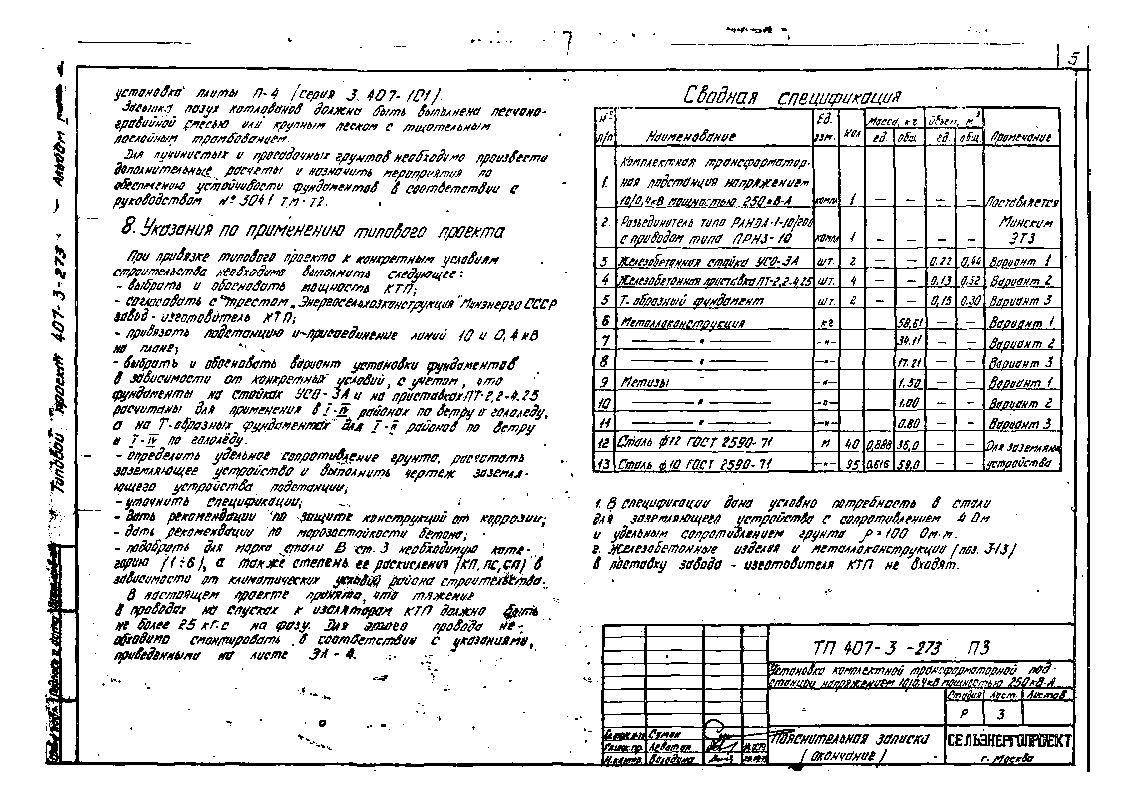 5
установка плиты П-4 (серия 3.407-101).
Засыпка пазух котлованов должна быть выполнена песчано-
гравийной смесью или крупным песком с тщательным
послойным трамбованием.
Для пучинистых и просадочных грунтов необходимо произвести
дополнительные расчеты и назначить мероприятия по
обеспечению устойчивости фундаментов в соответствии с
руководством № 5041 ТМ-Т2.
8. Указания по применению типового проекта
При привязке типового проекта к конкретным условиям
строительства необходимо выполнить следующее:
- выбрать и обосновать мощность КТП;
- согласовать с трестом „Энергосельхозконструкция" Минэнерго СССР
завод-изготовитель КТП;
- привязать подстанцию и присоединение линий 10 и 0,4 кВ
на плане;
- выбрать и обосновать вариант установки фундаментов
в зависимости от конкретных условий, с учетом, что
фундаменты на стойках УСО-3А и на приставках ПТ-2,2-4,25
рассчитаны для применения в I-IV районах по ветру и гололеду,
а на Т-образных фундаментах для I-II районов по ветру
и I-IV по гололеду.
- определить удельное сопротивление грунта, рассчитать
заземляющее устройство и выполнить чертеж заземля-
ющего устройства подстанции;
- уточнить спецификации;
- дать рекомендации по защите конструкций от коррозии;
- дать рекомендации по морозостойкости бетона;
- подобрать для марки стали В ст. 3 необходимую кате-
горию (1÷6), а также степень ее раскисления (КП, ПС, СП) в
зависимости от климатических условий района строительства.
В настоящем проекте принято, что тяжение
в проводах на спусках к изоляторам КТП должно быть
не более 25 кгс на фазу. Для этого провода не-
обходимо смонтировать в соответствии с указаниями,
приведенными на листе ЭЛ-4.
Сводная спецификация
№ п/п Наименование Ед. изм. Кол Масса, кг Объем, м³ Примечание
ед. общ. ед. общ.
Комплектная трансформатор-
1. ная подстанция напряжением
10/0,4кВ мощностью 250 кВ-А компл 1 — — — — Поставляется
2. Разъединитель типа РЛНДА-1-10/200 Минским
с приводом типа ПРНЗ-10 компл 1 — — — — ЭТЗ
3 Железобетонная стойка УСО-3А шт. 2 — — 0,22 0,44 Вариант 1
4 Железобетонная приставка ПТ-2,2-4,25 шт. 4 — — 0,13 0,52 Вариант 2
5 Т. образный фундамент шт. 2 — — 0,15 0,30 Вариант 3
6 Металлоконструкция кг 58.61 — — Вариант 1
7 — " — —"— 34.11 — — Вариант 2
8 — " — —"— 17.21 — — Вариант 3
9 Метизы —"— 1.50 — — Вариант 1
10 — " — —"— 1.00 — — Вариант 2
11 — " — —"— 0.80 — — Вариант 3
12 Сталь ф12 ГОСТ 2590-71 м 40 0,888 36,0 — — Для заземляющ.
13 Сталь ф10 ГОСТ 2590-71 —"— 95 0,616 59,0 — — устройства
1. В спецификации дана условно потребность в стали
для заземляющего устройства с сопротивлением 4 Ом
и удельным сопротивлением грунта ρ=100 Ом·м.
2. Железобетонные изделия и металлоконструкции (поз. 3-13)
в поставку завода-изготовителя КТП не входят.
ТП 407-3-273 ПЗ
Установка комплектной трансформаторной под-
станции напряжением 10/0,4кВ мощностью 250 кВ-А
Стадия Лист Листов
Р 3
Пояснительная записка
(окончание)
СЕЛЬЭНЕРГОПРОЕКТ
г. Москва
Типовой проект 407-3-273 Альбом